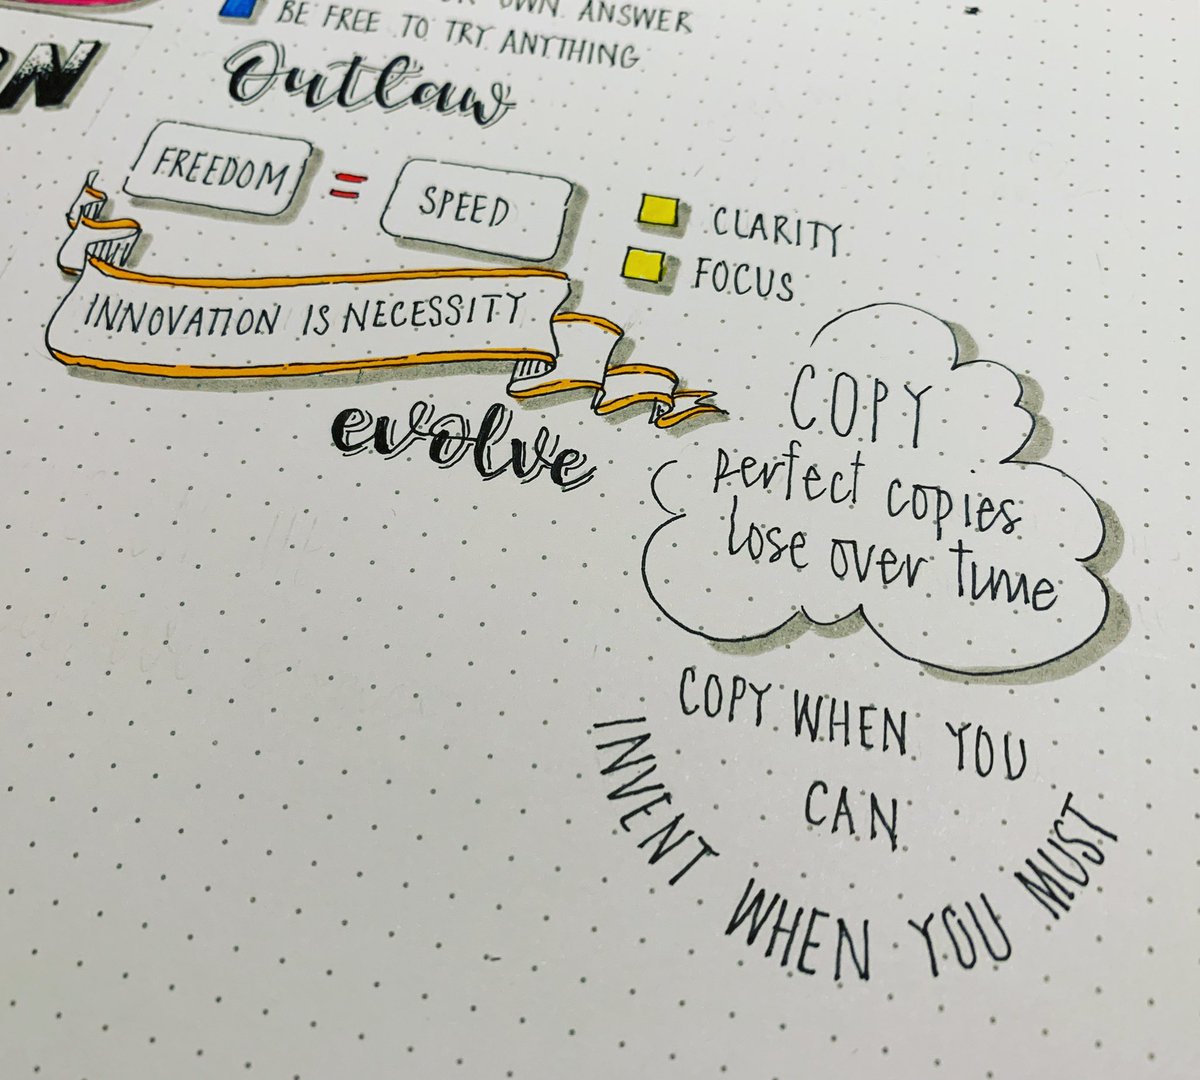 OWN ANSWER
BE FREE TO TRY ANYTHING
Outlaw
FREEDOM = SPEED
CLARITY
FOCUS
INNOVATION IS NECESSITY
evolve
COPY
perfect copies
lose over time
COPY WHEN YOU
CAN
INVENT WHEN YOU MUST